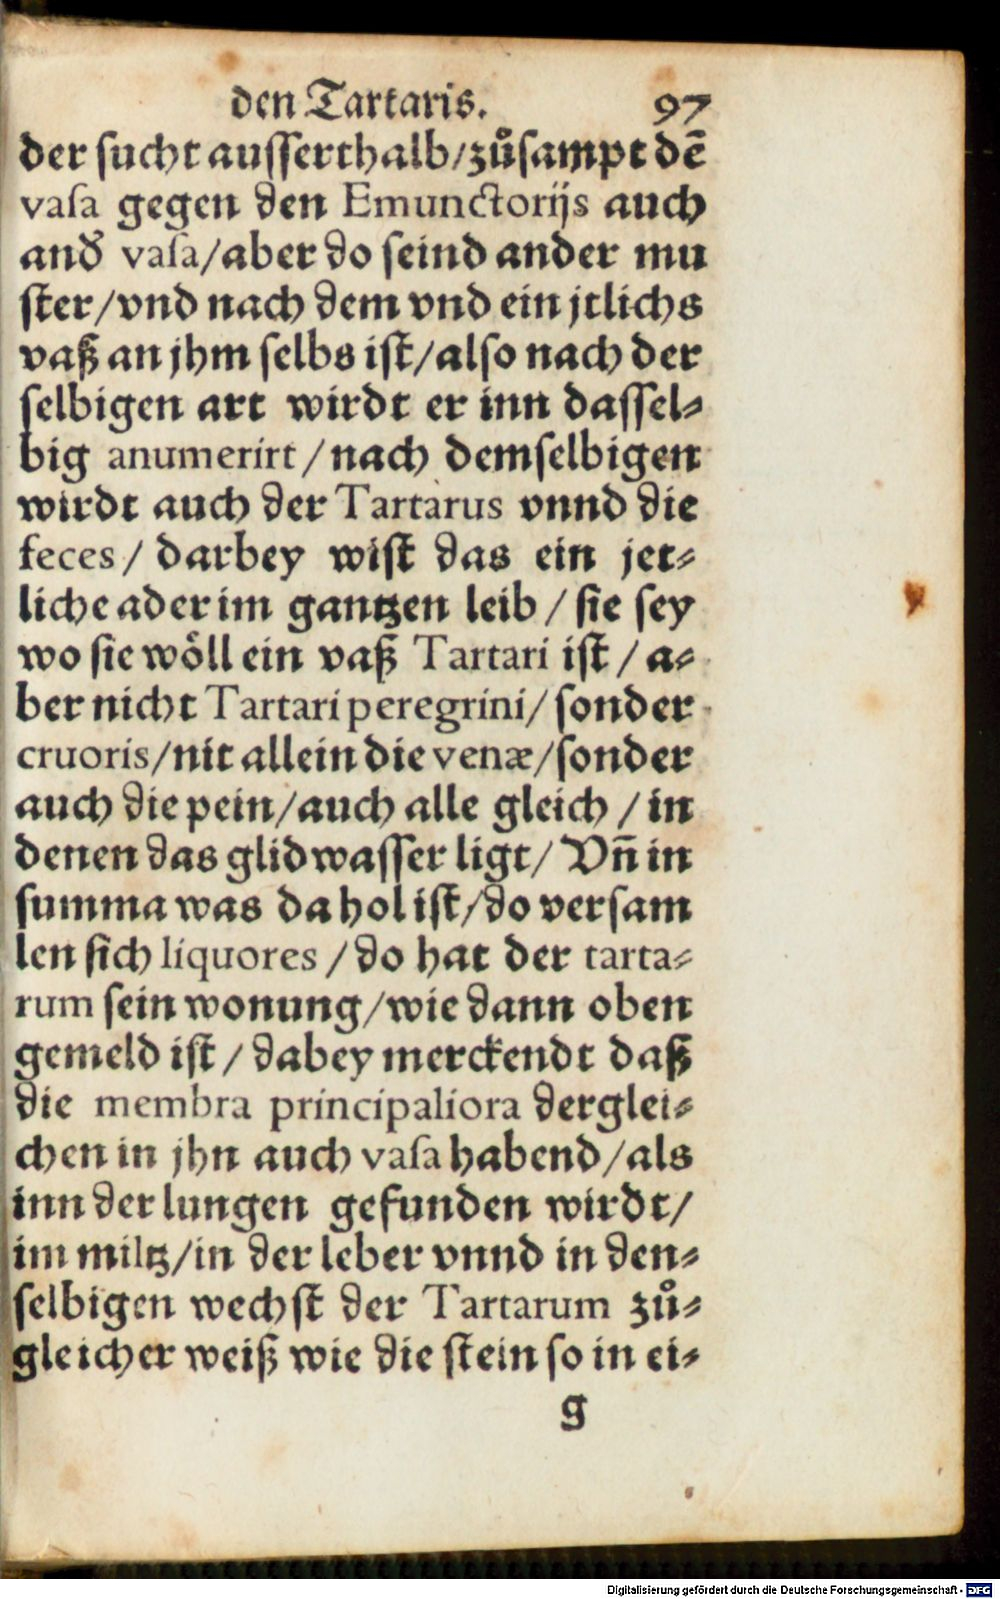 den Tartaris. 97
der sucht ausserthalb/zůsampt dē
vasa gegen den Emunctorijs auch
and̕ vasa/aber do seind ander mu
ster/vnd nach dem vnd ein jtlichs
vaß an jhm selbs ist/also nach der
selbigen art wirdt er inn dassel⸗
big anumerirt/nach demselbigen
wirdt auch der Tartarus vnnd die
feces/ darbey wist das ein jet⸗
liche ader im gantzen leib / sie sey
wo sie wöll ein vaß Tartari ist / a⸗
ber nicht Tartari peregrini/ sonder
cruoris/nit allein die venæ/sonder
auch die pein/auch alle gleich / in
denen das glidwasser ligt/ Vn̄ in
summa was da hol ist/do versam
len sich liquores /do hat der tarta⸗
rum sein wonung/wie dann oben
gemeld ist / dabey merckendt daß
die membra principaliora derglei⸗
chen in jhn auch vasa habend/als
inn der lungen gefunden wirdt/
im miltz/in der leber vnnd in den⸗
selbigen wechst der Tartarum zů⸗
gleicher weiß wie die stein so in ei⸗
g
Digitalisierung gefördert durch die Deutsche Forschungsgemeinschaft - DFG